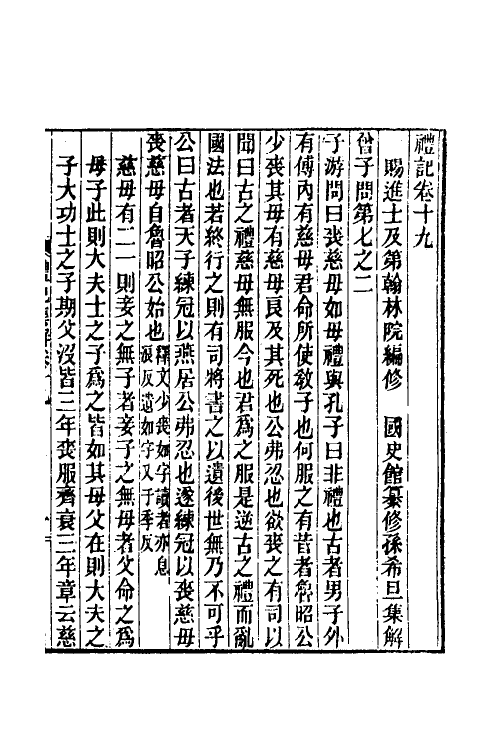 禮記卷十九
賜進士及第翰林院編修　國史館纂修孫希旦集解
曾子問第七之二
子游問曰喪慈母如母禮與孔子曰非禮也古者男子外
有傅內有慈母君命所使敎子也何服之有昔者魯昭公
少喪其母有慈母良及其死也公弗忍也欲喪之有司以
聞曰古之禮慈母無服今也君爲之服是逆古之禮而亂
國法也若終行之則有司將書之以遺後世無乃不可乎
公曰古者天子練冠以燕居公弗忍也遂練冠以喪慈母
喪慈母自魯昭公始也釋文少喪如字讀者亦息浪反遺如字又于季反
慈母有二一則妾之無子者妾子之無母者父命之爲
母子此則大夫士之子爲之皆如其母父在則大夫之
子大功士之子期父沒皆三年喪服齊衰三年章云慈